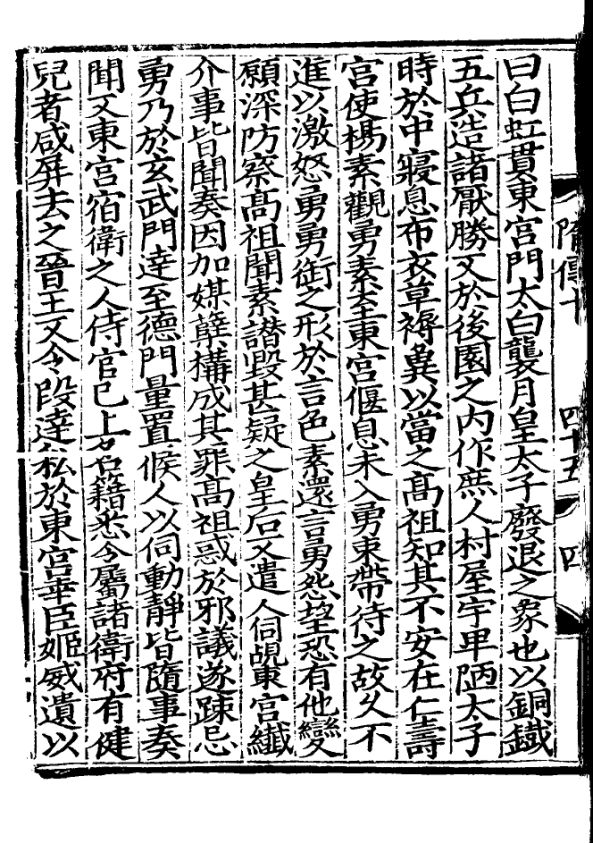 曰白虹貫東宮門太白襲月皇太子廢退之象也以銅鐵
五兵造諸厭勝又於後園之內作庶人村屋宇卑陋太子
時於中寢息布衣草褥冀以當之髙祖知其不安在仁壽
宮使楊素觀勇素至東宮偃息未入勇束帶待之故久不
進以激怒勇勇銜之形於言色素還言勇怨望恐有他變
願深防察髙祖聞素譖毀甚疑之皇后又遣人伺覘東宮纎
介事皆聞奏因加媒孽構成其罪髙祖惑於邪議遂踈忌
勇乃於玄武門達至德門量置候人以伺動靜皆隨事奏
聞又東宮宿衛之人侍官已上名籍悉令屬諸衛府有健
兒者咸屏去之晉王又令段達私於東宮幸臣姬威遺以
隋傳十 四十五 四